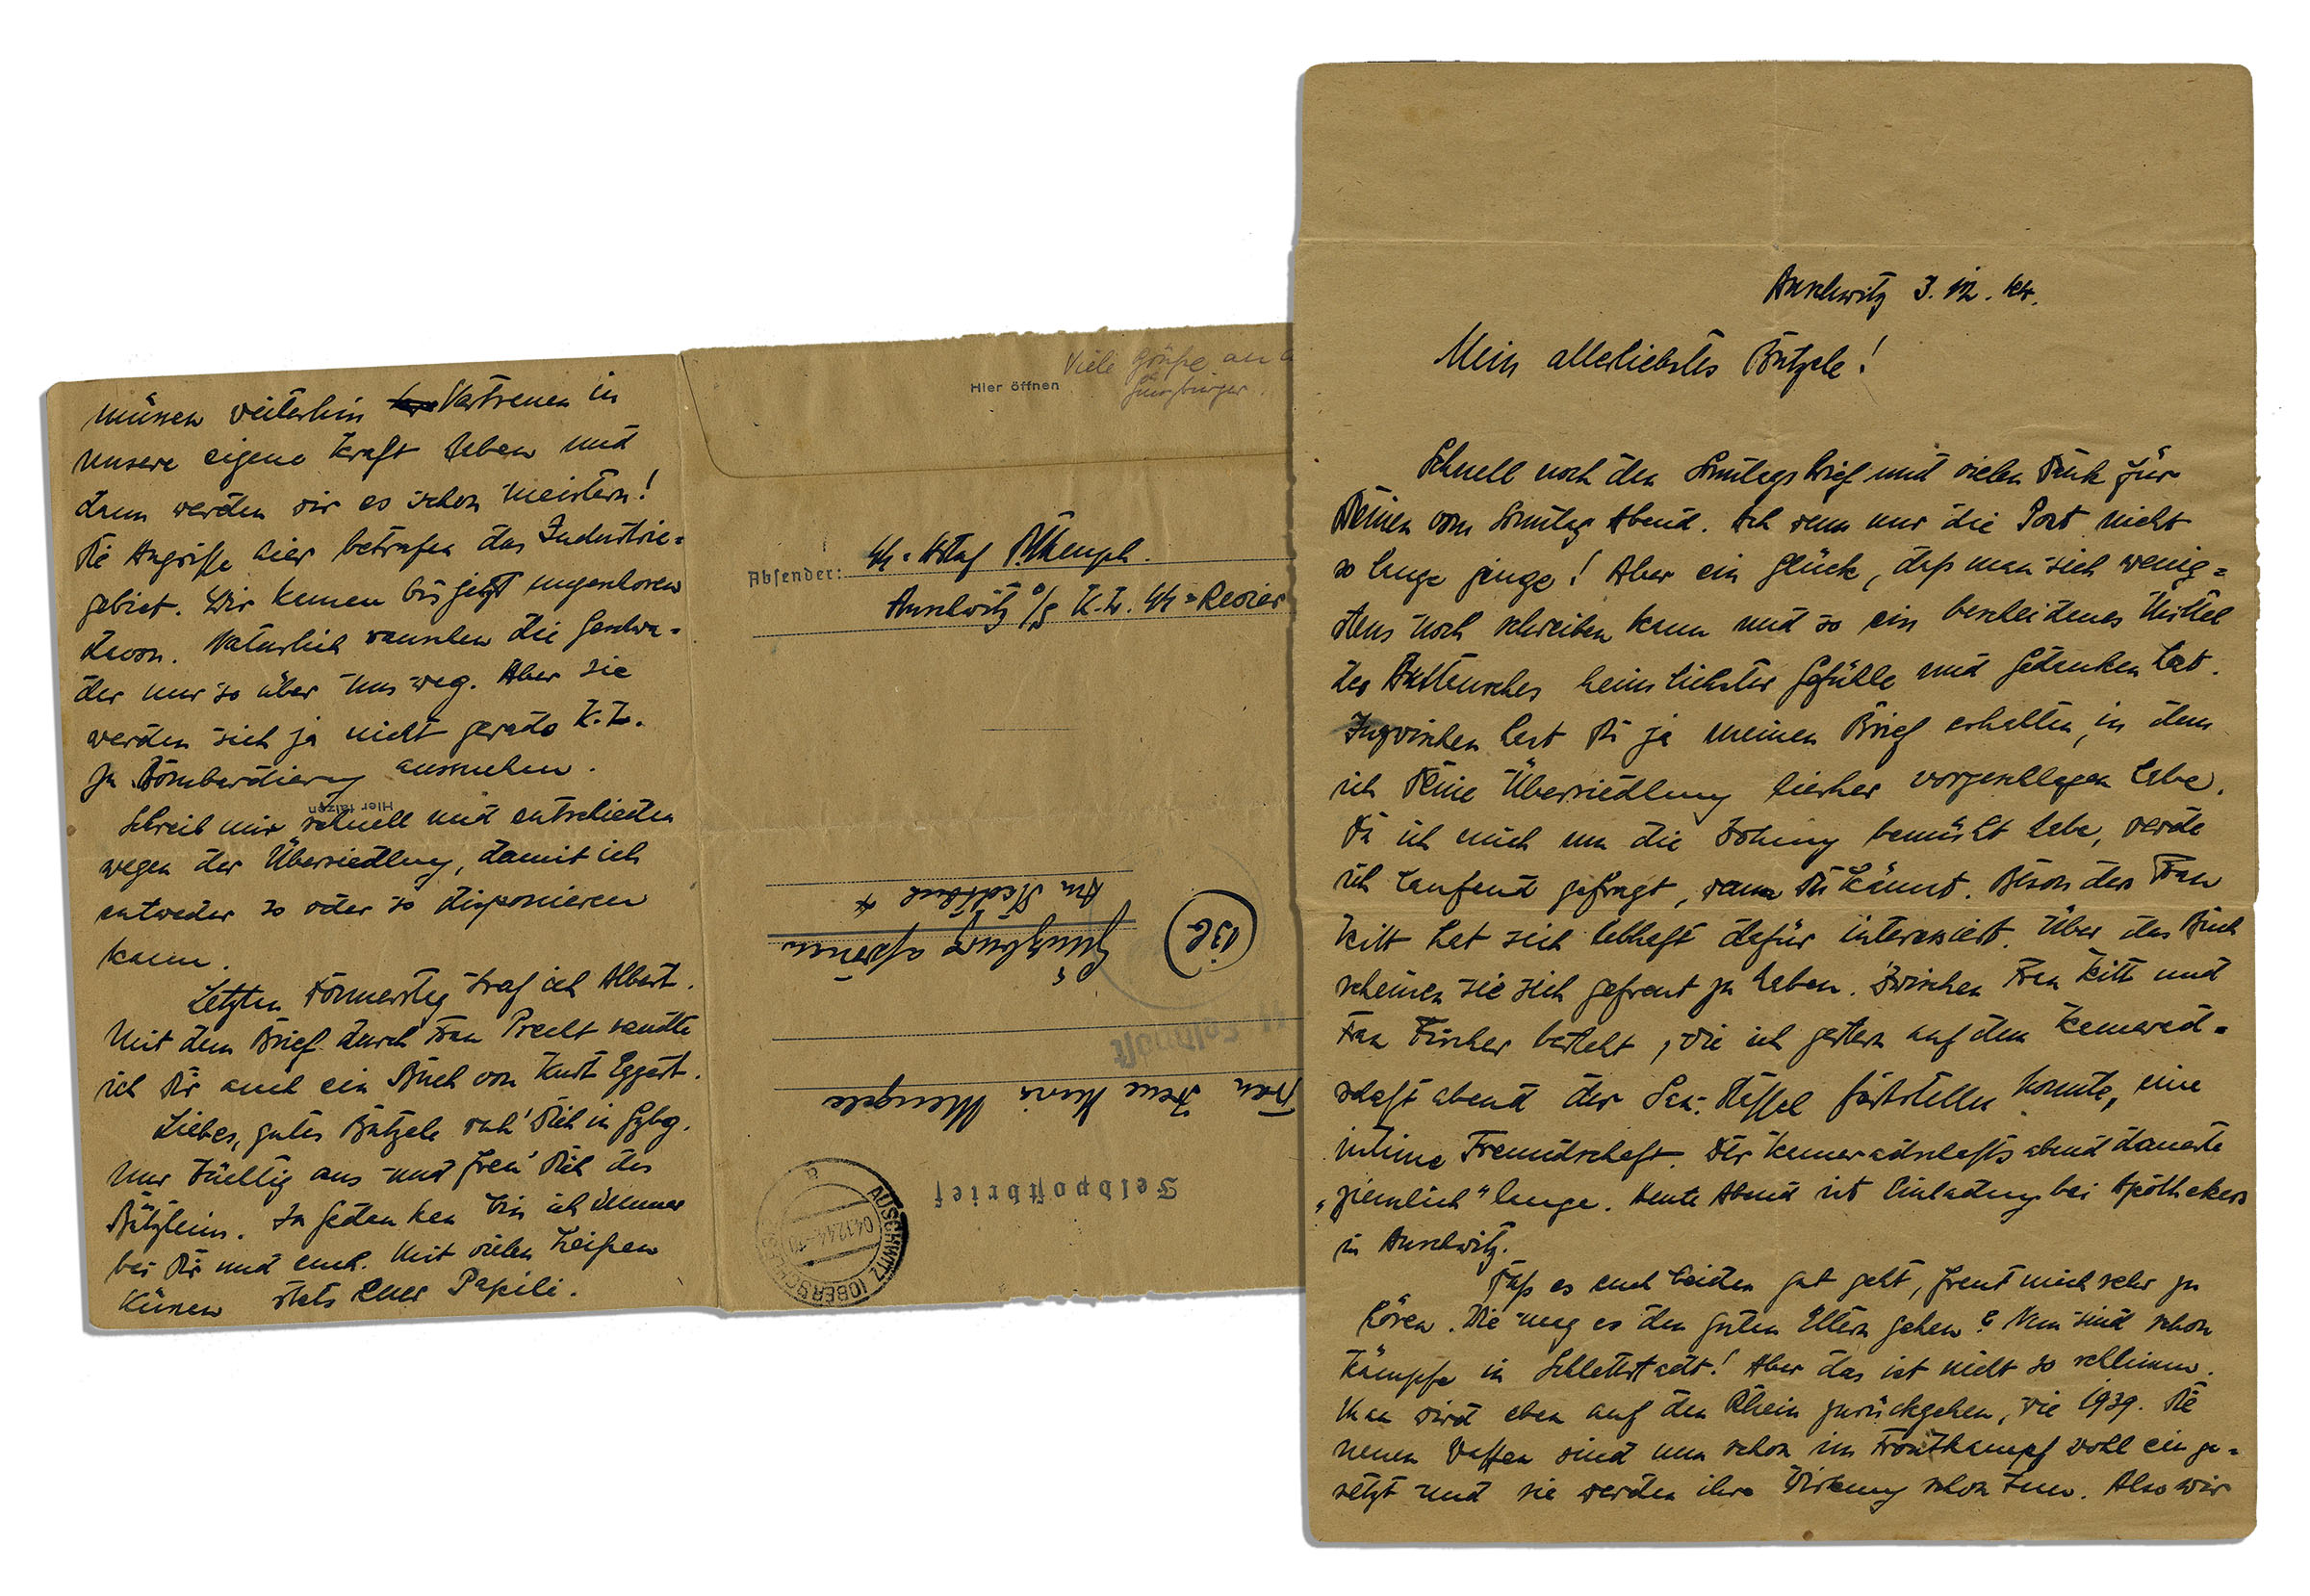 Auschwitz 3. 12. 44.
Mein allerliebstes Butzele!
Schnell noch den Sonntagsbrief und vielen Dank für
Deinen vom Sonntag Abend. Ach wenn nur die Post nicht
so lange ginge! Aber ein Glück, daß man sich wenig=
stens noch schreiben kann und so ein bescheidenes Mittel
des Austausches heimlichster Gefühle und Gedanken hat.
Inzwischen hast Du ja meinen Brief erhalten, in dem
ich Deine Übersiedlung hierher vorgeschlagen habe.
Da ich mich um die Wohnung bemüht habe, werde
ich laufend gefragt, wann Du kämst. Besonders Frau
Kitt hat sich lebhaft dafür interessiert. Über das Buch
scheinen sie sich gefreut zu haben. Zwischen Frau Kitt und
Frau Fischer besteht, wie ich gestern auf dem Kamerad=
schaftabend der San. Staffel feststellen konnte, eine
intime Freundschaft. Der Kameradschaftsabend dauerte
„ziemlich" lange. Heute Abend ist Einladung bei Apothekers
in Auschwitz.
Daß es euch beiden gut geht, freut mich sehr zu
hören. Wie mag es den guten Eltern gehen? Nun sind schon
Kämpfe in Schlettstadt! Aber das ist nicht so schlimm.
Man wird eben auf den Rhein zurückgehen, wie 1939. Die
neuen Waffen sind nun schon im Frontkampf wohl einge=
setzt und sie werden ihre Wirkung schon tun. Also wir
müssen weiterhin Vertrauen in
unsere eigene Kraft haben und
dann werden wir es schon meistern!
Die Angriffe hier betrafen das Industrie=
gebiet. Wir kamen bis jetzt ungeschoren
davon. Natürlich rauschen die Geschwa=
der nur so über uns weg. Aber sie
werden sich ja nicht gerade K.L.
zu Bombardierung aussuchen.
Hier falzen
Schreib mir schnell und entschieden
wegen der Übersiedlung, damit ich
entweder so oder so disponieren
kann.
Letzten Donnerstag traf ich Albert.
Mit dem Brief durch Frau Precht sandte
ich Dir auch ein Buch von Kurt Eggert.
Liebes, gutes Butzele ruh' Dich in Gzbg.
nur tüchtig aus und freu' Dich des
Bützleins. In Gedanken bin ich immer
bei Dir und euch. Mit vielen heißen
Küssen stets Euer Papili.
Viele Grüße an
Günzburger.
Hier öffnen
Absender:
Auschwitz O/S K.L. SS=Revier
Feldpostbrief
AUSCHWITZ (OBERSCHLES)
04.12.44
a
Frau Irene Maria Mengele
Günzburg a/Donau
13b
Am Stadtbach 4